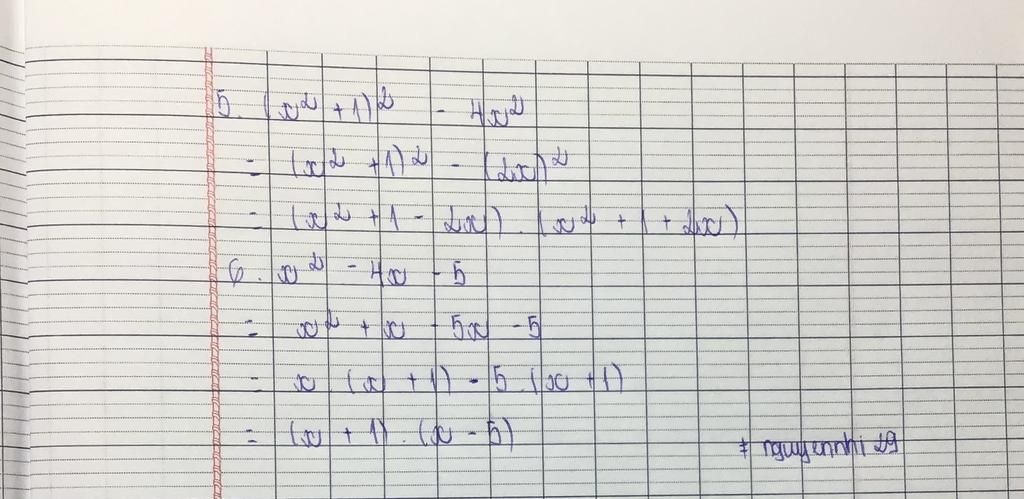 5. (x² + 1)² - 4x²
= (x² + 1)² - (2x)²
= (x² + 1 - 2x) . (x² + 1 + 2x)
6. x² - 4x - 5
= x² + x - 5x - 5
= x . (x + 1) - 5 . (x + 1)
= (x + 1) . (x - 5)
# nguyennhi 29